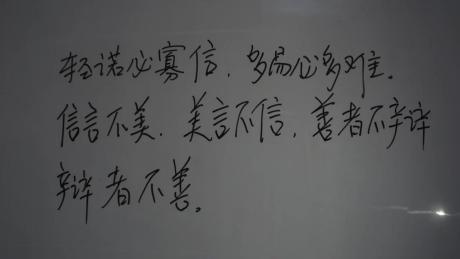 轻诺必寡信，多易必多难。
信言不美，美言不信，善者不辩
辩者不善。